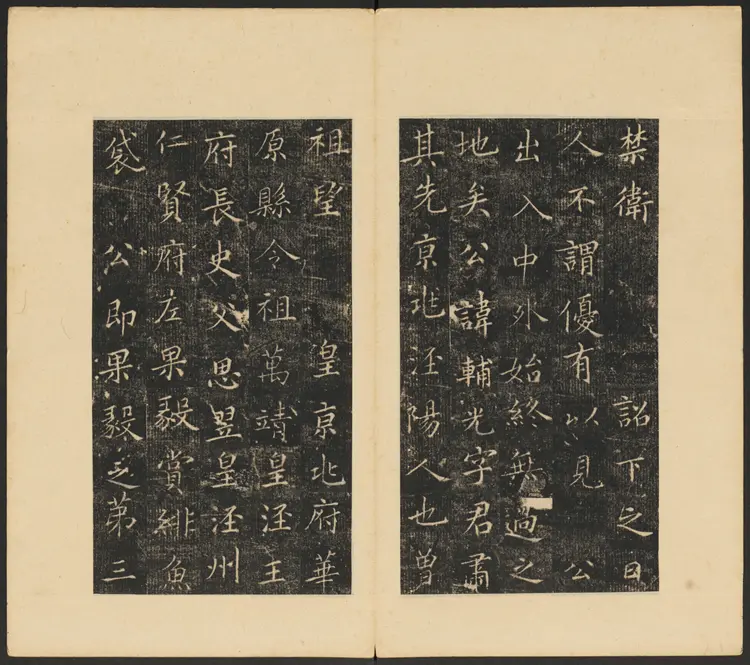 禁衛 詔下之日
人不謂優有以見 公
出入中外始終無過之
地矣公諱輔光字君肅
其先京兆涇陽人也曽
祖望 皇京兆府華
原縣令祖萬靖皇涇王
府長史父思翌皇涇州
仁賢府左果毅賞緋魚
袋 公即果毅之第三